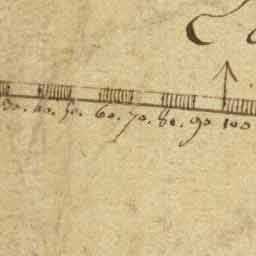 30. 40. 50. 60. 70. 80. 90 100